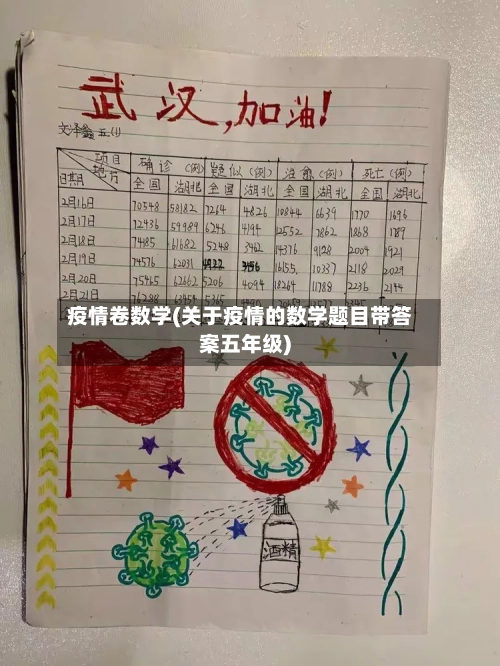 武汉,加油!
五.(1)
项目 确诊(例) 疑似(例) 治愈(例) 死亡(例)
日期 地方 全国 湖北 全国 湖北 全国 湖北 全国 湖北
2月16日 70548 58182 7264 4826 10844 6639 1770 1696
2月17日 72436 59989 6246 4194 12552 7862 1868 1789
2月18日 74185 61682 5248 3462 14376 9128 2004 1921
2月19日 74576 62031 4922 3456 16155 10337 2118 2029
2月20日 75465 62662 5206 4094 18264 11788 2236 2144
2月21日 76288 63454 5365
疫情卷数学(关于疫情的数学题目带答
案五年级)
酒精